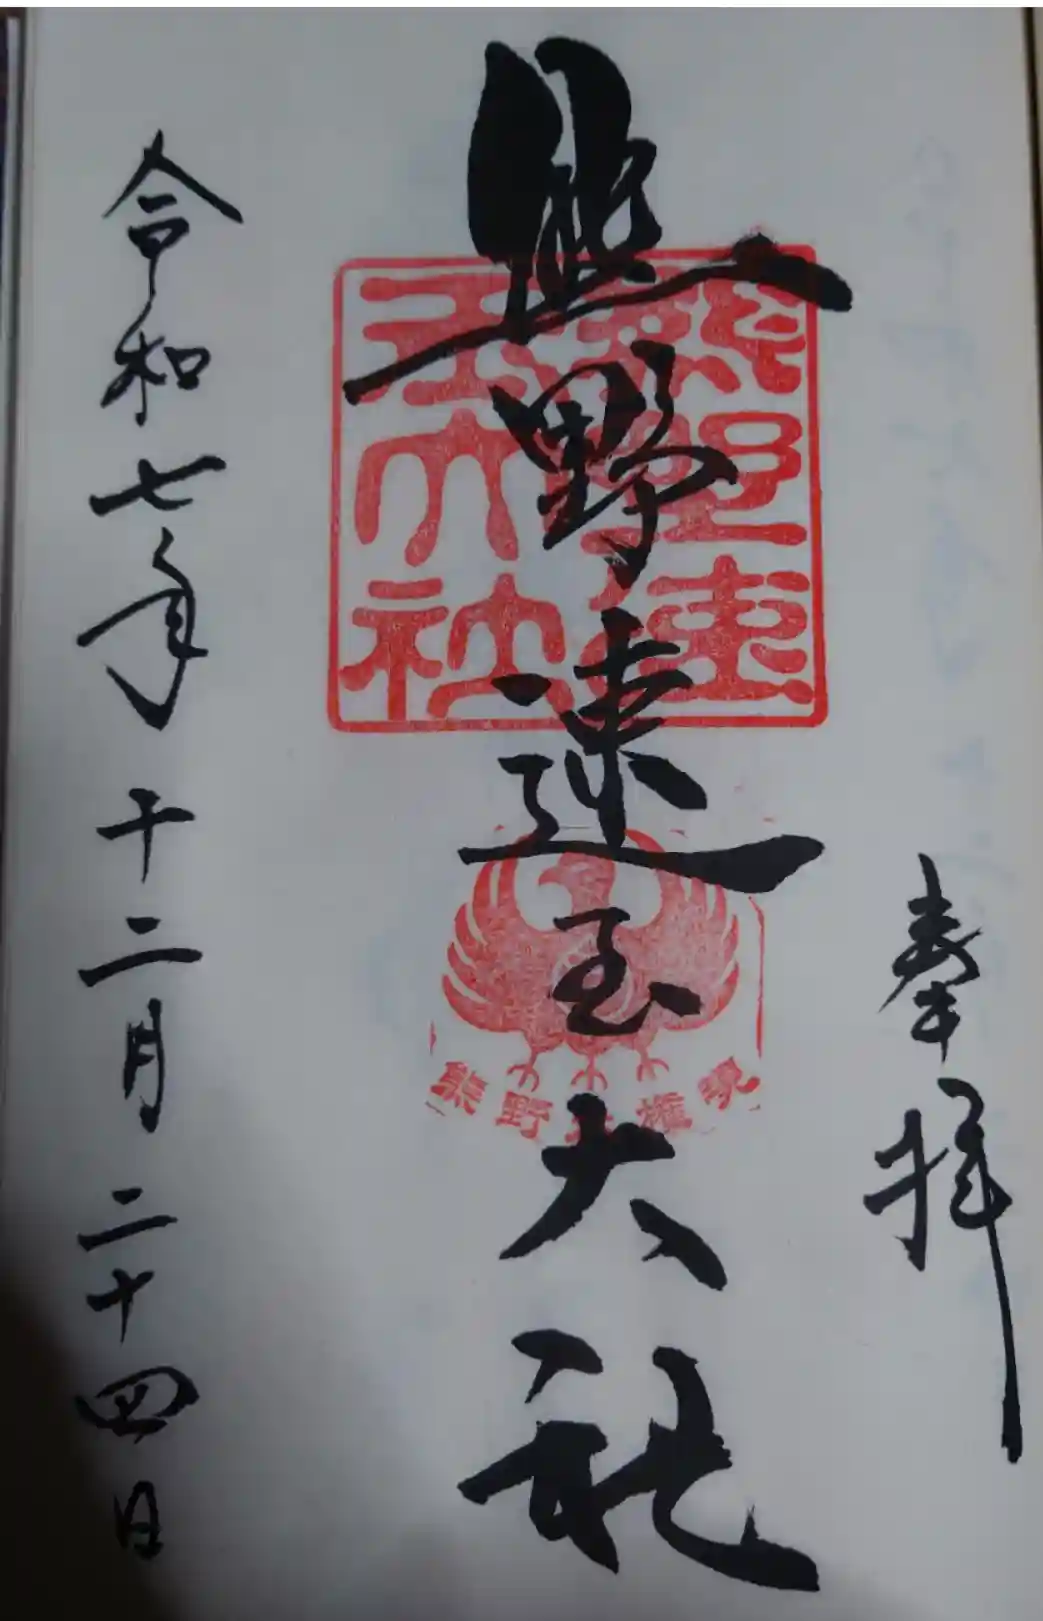 奉拝
熊野速玉大社
熊野速玉大社
熊野大権現
令和七年十二月二十四日